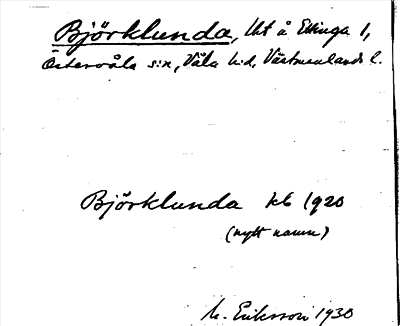 Björklunda, lht å Ettinga 1,
Östervåla s:n, Våla h:d, Västmanlands l.
Björklunda kb 1920
(nytt namn)
M. Eriksson 1930